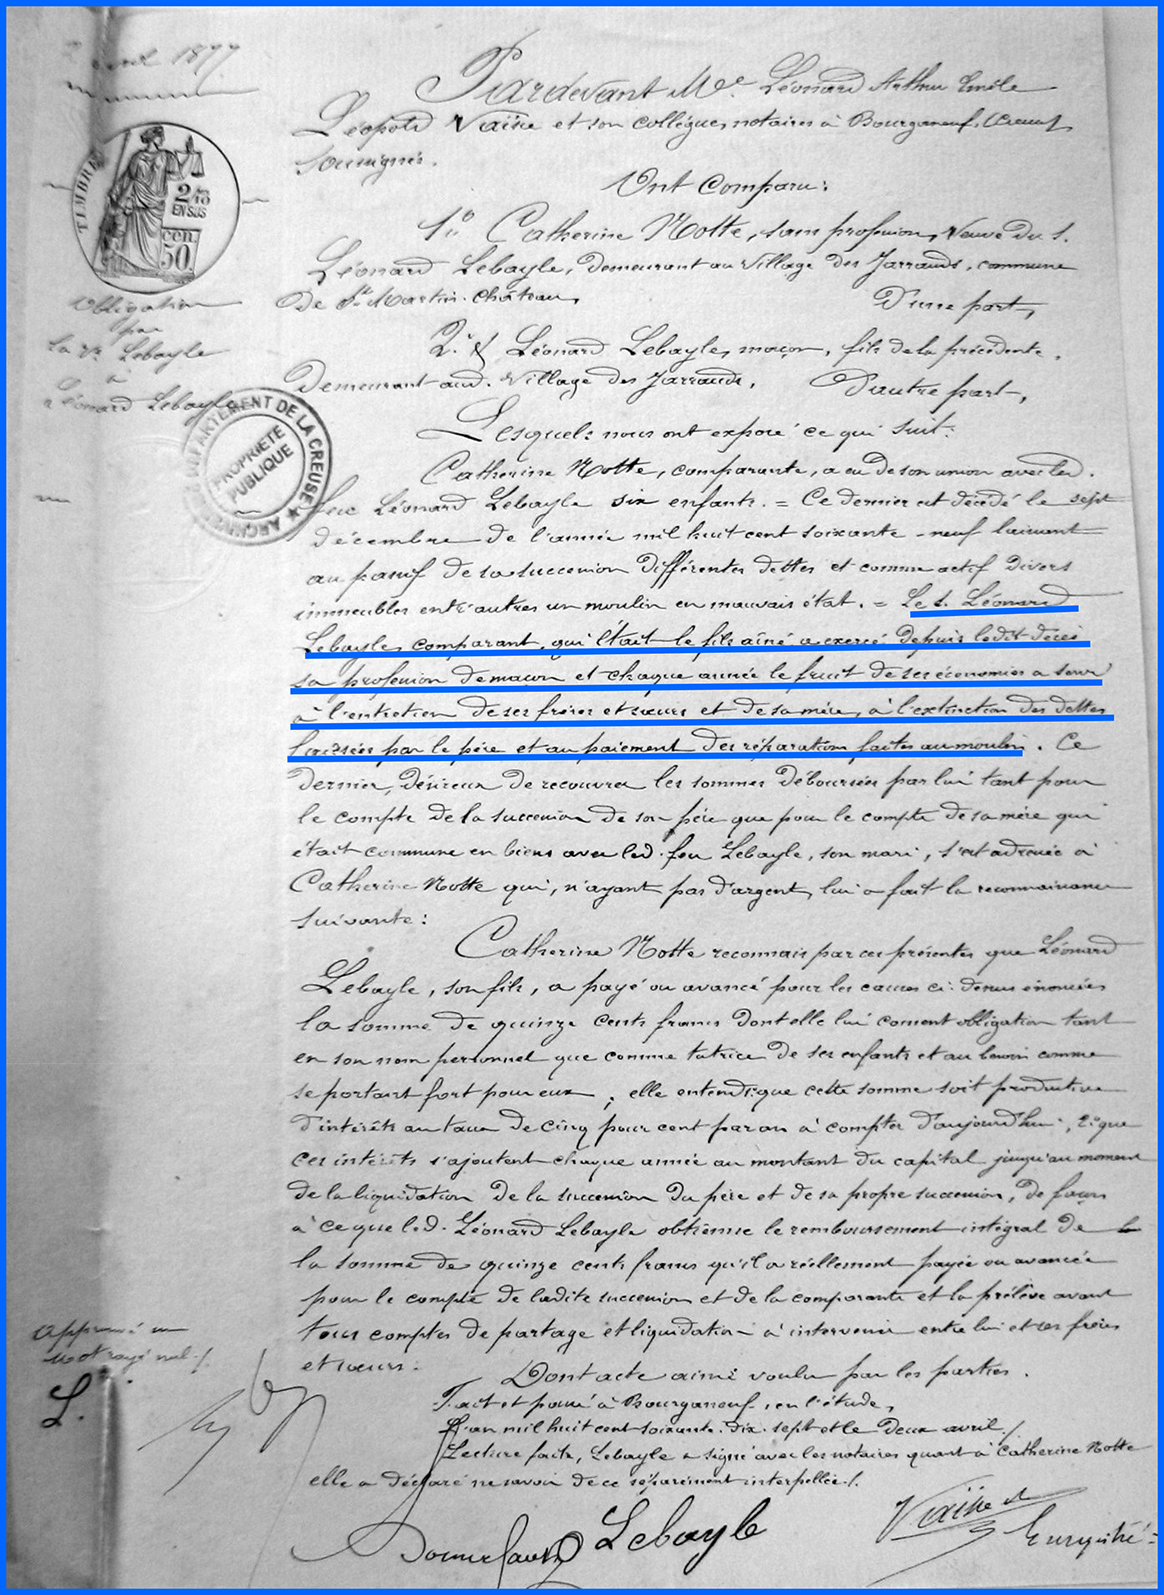 avril 1877
Pardevant Me. Léonard Arthur Emile
Léopold Vaïsse et son collègue, notaires à Bourganeuf, (Creuse)
soussignés.
Ont Comparu:
TIMBRE
2/10
EN SUS
cen
50
1º Catherine Notte, sans profession, Veuve du s.
Léonard Lebayle, demeurant au village des Jarrauds, commune
de St. Martin-Château,
D'une part,
Obligation
par
la ve Lebayle
à
Léonard Lebayle
2º & Léonard Lebayle, maçon, fils de la précédente,
demeurant aud. village des Jarrauds,
D'autre part,
DÉPARTEMENT DE LA CREUSE ★ ARCHIVES
PROPRIÉTÉ
PUBLIQUE
Lesquels nous ont exposé ce qui suit:
Catherine Notte, comparante, a eu de son union avec led.
feu Léonard Lebayle six enfants. = Ce dernier est décédé le sept
décembre de l'année mil huit cent soixante-neuf laissant
au passif de sa succession différentes dettes et comme actif divers
immeubles entr'autres un moulin en mauvais état. = Le s. Léonard
Lebayle, comparant, qui était le fils aîné a exercé depuis ledit décès
sa profession de maçon et chaque année le fruit de ses économies a servi
à l'entretien de ses frères et sœurs et de sa mère, à l'extinction des dettes
laissées par le père et au paiement des réparations faites au moulin. Ce
dernier, désireux de recouvrer les sommes déboursées par lui tant pour
le compte de la succession de son père que pour le compte de sa mère qui
était commune en biens avec led. feu Lebayle, son mari, s'est adressé à
Catherine Notte qui, n'ayant pas d'argent, lui a fait la reconnaissance
suivante:
Catherine Notte reconnais par ces présentes que Léonard
Lebayle, son fils, a payé ou avancé pour les causes ci-dessus énoncées
la somme de quinze cents francs dont elle lui consent obligation tant
en son nom personnel que comme tutrice de ses enfants et au besoin comme
se portant fort pour eux; elle entend que cette somme soit productive
d'intérêts au taux de cinq pour cent par an à compter d'aujourd'hui, 2º que
ces intérêts s'ajoutent chaque année au montant du capital jusqu'au moment
de la liquidation de la succession du père et de sa propre succession, de façon
à ce que led. Léonard Lebayle obtienne le remboursement intégral de
la somme de quinze cents francs qu'il a réellement payée ou avancée
pour le compte de ladite succession et de la comparante et la prélève avant
tous comptes de partage et liquidation à intervenir entre lui et ses frères
et sœurs.
Approuvé un
mot rayé nul ./.
L.
Dont acte ainsi voulu par les parties.
Fait et passé à Bourganeuf, en l'étude,
L'an mil huit cent soixante-dix-sept et le deux avril./.
Lecture faite, Lebayle a signé avec les notaires quant à Catherine Notte
elle a déclaré ne savoir de ce séparément interpellée./.
Lebayle
Vaïsse
Enregistré